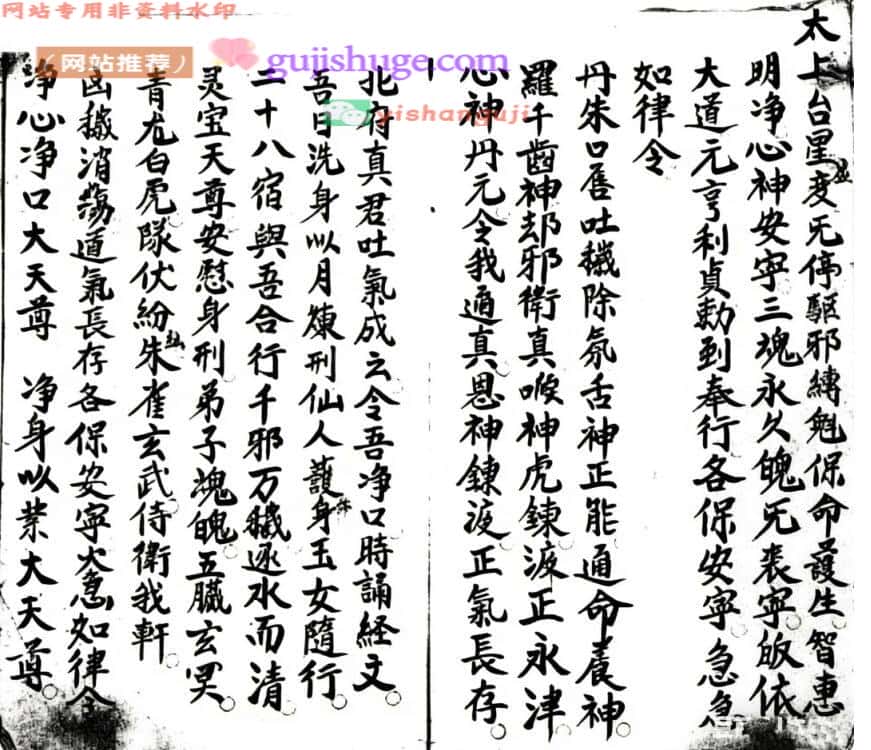 网站专用非资料水印
（网站推荐）
gujishuge.com
yishanguji
太上台星应度无停驱邪縛魁保命護生智惠
明净心神安宁三魂永久魄无丧宁皈依
大道元亨利貞勅到奉行各保安宁急急
如律令
丹朱口唇吐穢除氛舌神正能通命養神
羅千齒神却邪衛真喉神虎鍊液正永津
心神丹元令我通真思神鍊液正氣長存
北府真君吐氣成云令吾净口時誦経文
吾日洗身以月煉刑仙人護身玉女隨行
二十八宿與吾合行千邪万穢逐水而清
灵宝天尊安慰身刑弟子魂魄五臓玄冥
青龙白虎隊伏紛紜朱雀玄武侍衛我軒
凶穢消蕩道氣長存各保安宁大急如律令
净心净口大天尊 净身以業大天尊